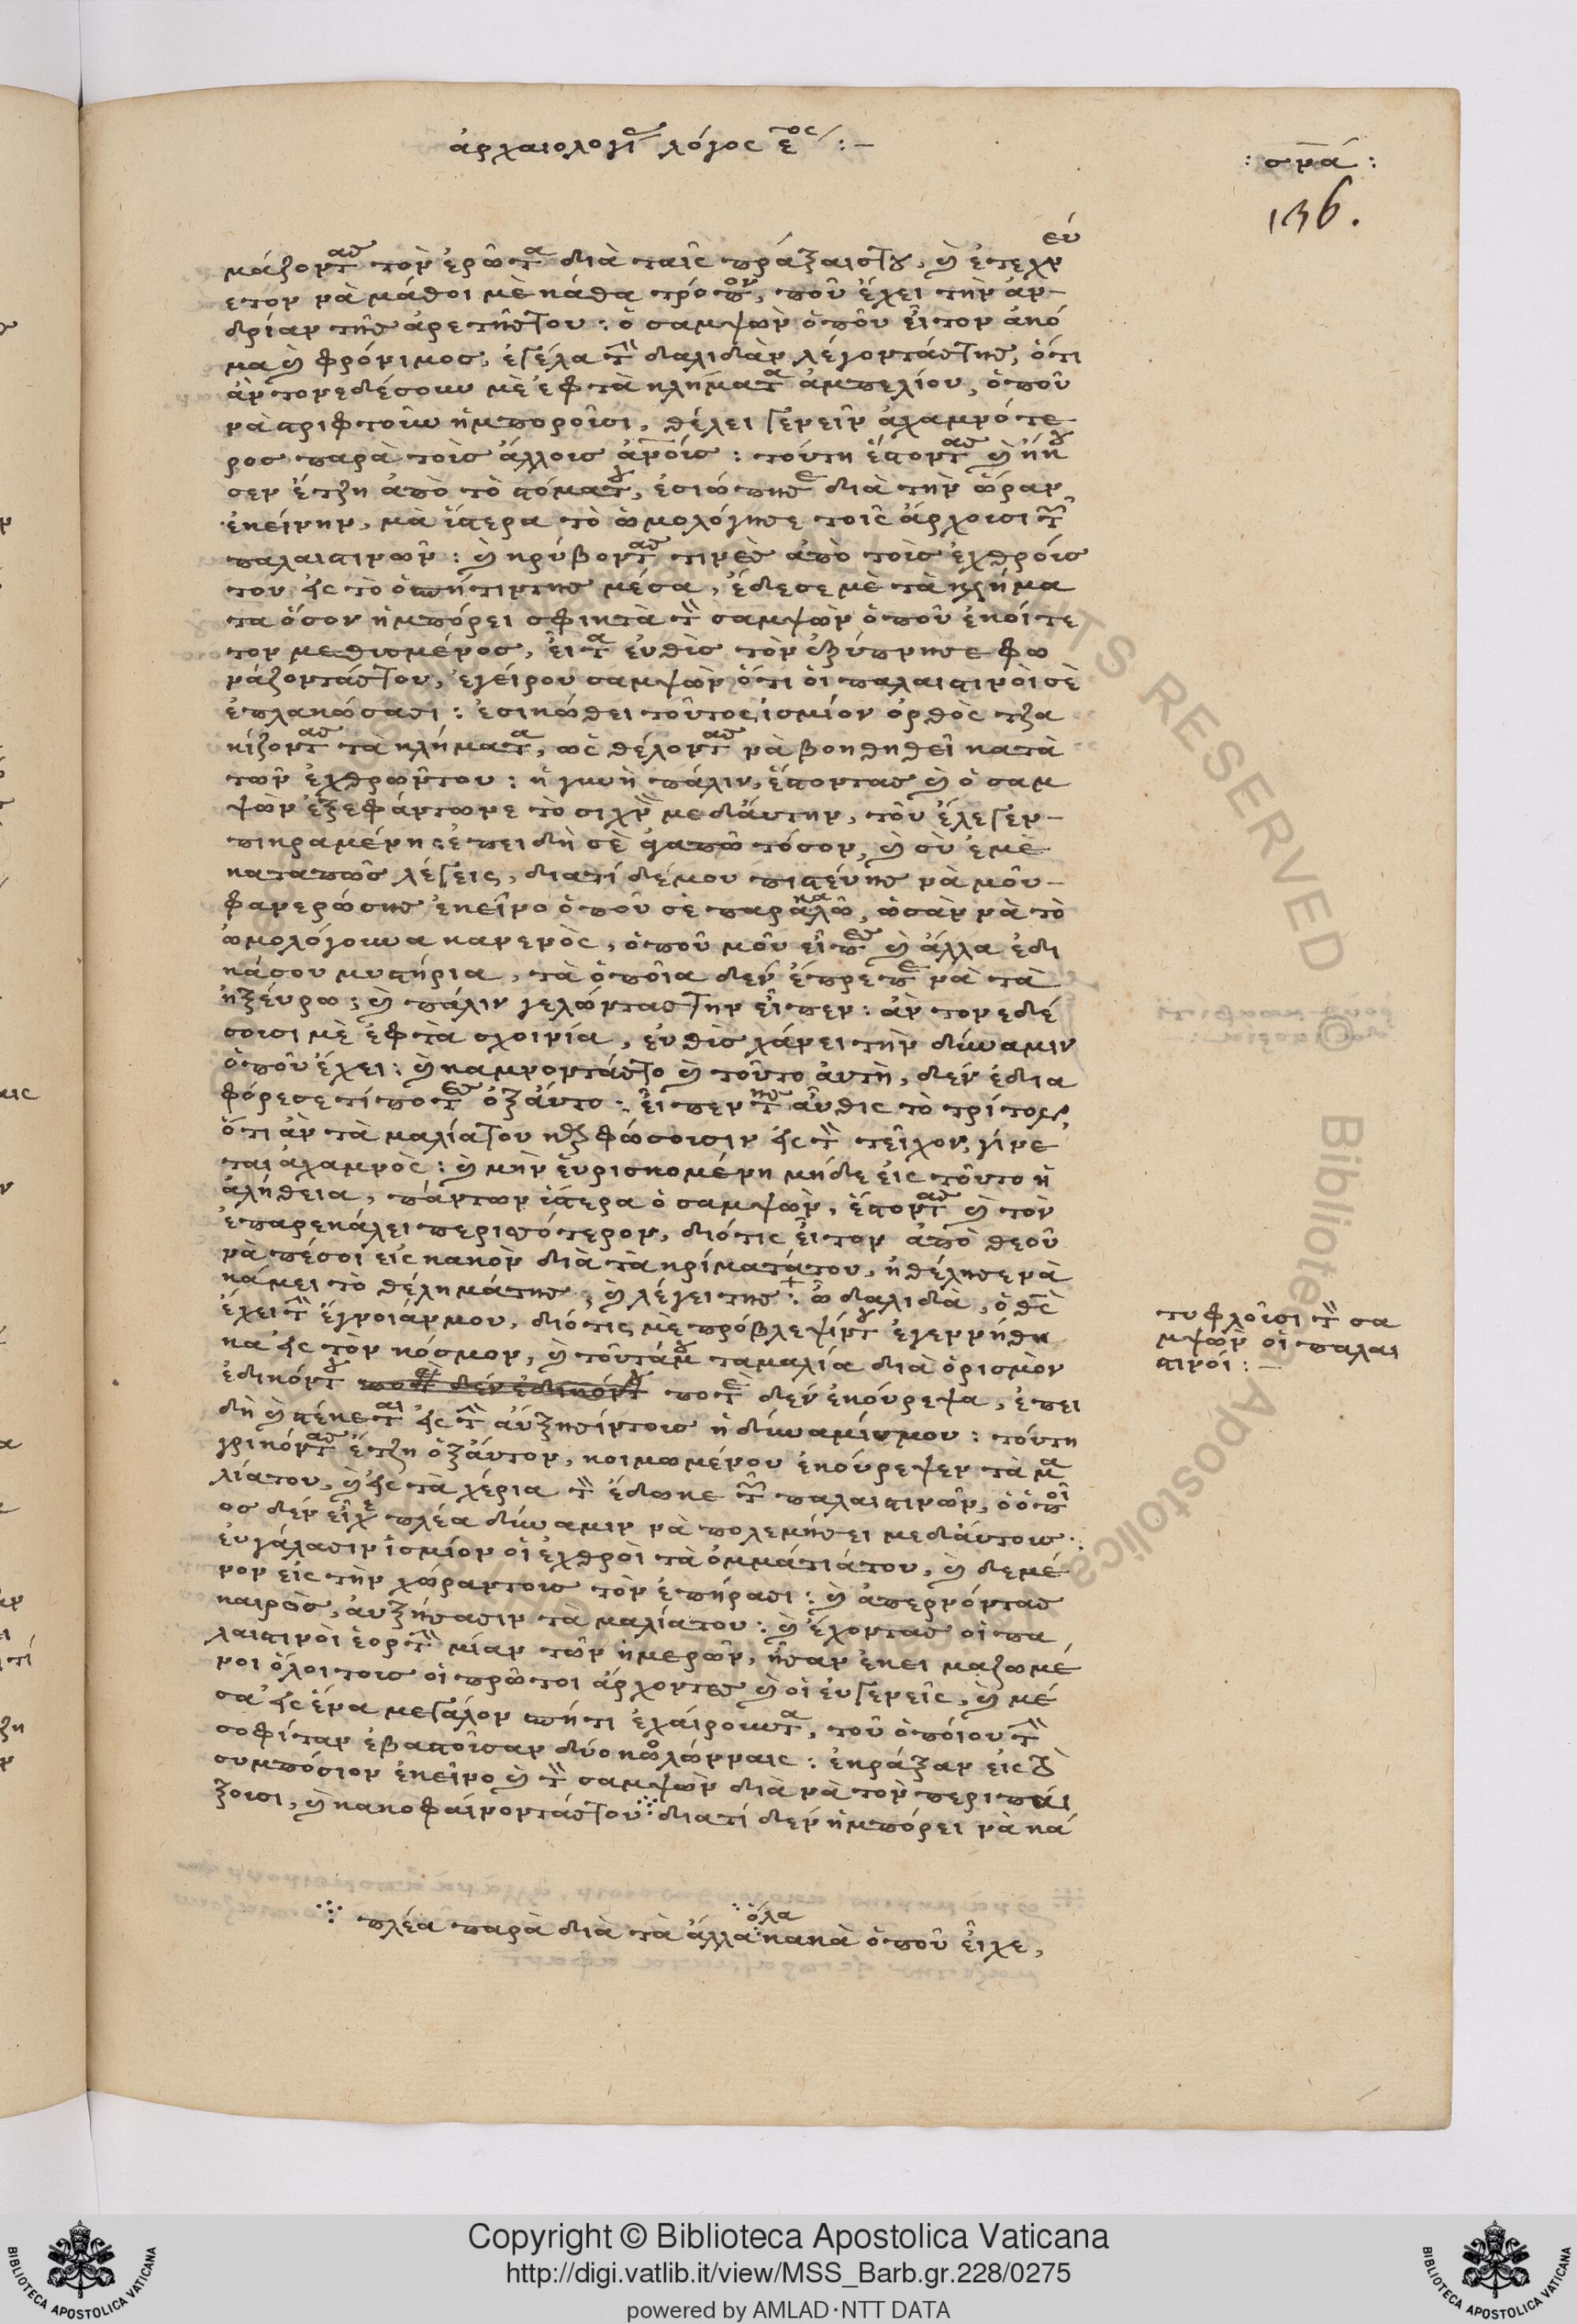 ἀρχαιολογίας λόγος ε^ος :–
: σμα :
136.
μάζοντας τὸν ἔρωτα διὰ ταῖς πράξαις του, καὶ ἐτεχνεύ
ετον νὰ μάθοι μὲ κάθα τρόπον, ποῦ ἔχει τὴν ἀν-
δρίαν τῆς ἀρετῆς του : ὁ σαμψὼν ὁποῦ εἶτον ἀκό
μα καὶ φρόνιμος, ἐγέλα τὴν δαλιδὰν λέγοντάς της, ὅτι
ἀν τονεδέσουν μὲ ἐφτὰ κλήματα ἀμπελίου, ὁποῦ
νὰ στριφτοῦν ἠμποροῖσι, θέλει γένειν ἀχαμνότε
ρος παρὰ τοὶς ἄλλοις ἀνοῖς : τούτη ἔστοντας καὶ ἤκου
σεν ἔτζη ἀπὸ τὸ στόμα του, ἐσιώπησε διὰ τὴν ὥραν
ἐκείνην, μὰ ὕστερα τὸ ὡμολόγησε τοῖς ἄρχοισι τῶν
παλαιστινῶν : καὶ κρύβοντας τινὲς ἀπὸ τοὶς ἐχθροὶς
του εἰς τὸ ὀσπήτιντης μέσα, ἔδεσε μὲ τὰ κλήμα
τα ὅσον ἠμπόρει σφικτὰ τὸν σαμψὼν ὁποῦ ἐκοίτε
τον μεθισμένος, εἶτα εὐθὶς τὸν ἐξύπνησε φω
νάζοντάς του, ἐγείρου σαμψὼν ὅτι οἱ παλαιστινοὶ σὲ
ἐπλακώσασι : ἐσικώθει τοῦτος ἰσμίον ὀρθὸς τζα
κίζοντας τὰ κλήματα, ὡς θέλοντας νὰ βοηθηθεῖ κατὰ
τῶν ἐχθρῶντου : ἡ γυνὴ πάλιν, ἔστοντας καὶ ὁ σαμ
ψὼν ἐξεφάντωνε τὸ συχνὸν μεδαύτην, τοῦ ἔλεγεν-
πικραμένη : ἐπειδὴ σὲ ἀγαπῶ τόσον, καὶ σὺ ἐμὲ
καταπῶς λέγεις, διατί δέμου πιστεύης νὰ μοῦ-
φανερώσης ἐκεῖνο ὁποῦ σὲ παρακαλῶ, ὡσὰν νὰ τὸ
ὡμολόγουνα κανενὸς, ὁποῦ μοῦ εἶπες καὶ ἄλλα ἐδι
κάσου μυστήρια, τὰ ὁποῖα δὲν ἔπρεπε νὰ τὰ
ἠξεύρω ; καὶ πάλιν γελώντας την εἶπεν : ἀν τονεδέ
σοισι μὲ ἐφτὰ σχοινία, εὐθὶς χάνει τὴν δύναμιν
ὁποῦ ἔχει : καὶ καμνοντάς το καὶ τοῦτο ἀυτὴ, δὲν ἐδια
φόρεσε τίποτες ὀξάυτο : εἶπεν της αὖθις τὸ τρίτος,
ὅτι ἀν τὰ μαλία του καρφώσοισιν εἰς τὸν τεῖχον, γίνε
ται ἀχαμνὸς : καὶ μὴν εὑρισκομένη μήδε εἰς τοῦτο ἡ
ἀλήθεια, πάντων ὕστερα ὁ σαμψὼν, ἔστοντας καὶ τὸν
ἐπαρεκάλει περισσότερον, διότις εἶτον ἀπὸ θεοῦ
νὰ πέσοι εἰς κακὸν διὰ τὰ κρίματάτου, ἠθέλησε νὰ
κάμει τὸ θέλημάτης, καὶ λέγει της : ὦ δαλιδὰ, ὁ θεὸς
ἔχει τὴν ἔγνοιάνμου, διότις μὲ πρόβλεψίντου ἐγεννήθη
κα εἰς τὸν κόσμον, καὶ τοῦτάμου ταμαλία διὰ ὁρισμὸν
ἐδικόντου ποτὲ δὲν ἐκούρεψα, ἐπει
δὴ καὶ στένεται εἰς τὴν ἀύξησίντοις ἡ δύναμίνμου : τούτη
γρικόντας ἔτζη ὀξάυτον, κοιμωμένου ἐκούρεψεν τὰ μα
λίατου, καὶ εἰς τὰ χέρια τὸν ἔδωκε τῶν παλαιστινῶν, ὁ ὁποῖ
ος δὲν εἶχε πλέα δύναμιν νὰ πολεμήσει μεδάυτοις :
ἐυγάλασιν ἰσμίον οἱ ἐχθροὶ τὰ ὀμμάτιάτου, καὶ δεμέ
νον εἰς τὴν χώραντοις τὸν ἐπήρασι : καὶ ἀπερνόντας
καιρὸς, ἀυξήσασιν τὰ μαλίατου : καὶ ἔχοντας οἱ πα
λαιστινοὶ ἑορτὴν μίαν τῶν ἡμερῶν, ἦσαν ἐκεῖ μαζωμέ
νοι ὅλοι τοις οἱ πρῶτοι ἄρχοντες καὶ οἱ ἐυγενεῖς, καὶ μέ
σα εἰς ἕνα μεγάλον σπήτι ἐχαίρουντα, τοῦ ὁποίου τὴν
σοφίταν ἐβαστοῖσαν δύο κωλώνναις : ἐκράξαν εἰς τὸ
συμπόσιον ἐκεῖνο καὶ τὸν σαμψὼν διὰ νὰ τὸν περιπαί
ξοισι, καὶ κακοφαίνοντάς του ⁘ διατί δὲν ἠμπόρει νὰ κά
τυφλοῖσι τὸν σα
μψὼν οἱ παλαι
στινοί : –
⁘ πλέα παρὰ διὰ τὰ ἄλλα ὅλα κακὰ ὁποῦ εἶχε,
Copyright © Biblioteca Apostolica Vaticana
http://digi.vatlib.it/view/MSS_Barb.gr.228/0275
powered by AMLAD·NTT DATA
BIBLIOTECA APOSTOLICA VATICANA
BIBLIOTECA APOSTOLICA VATICANA